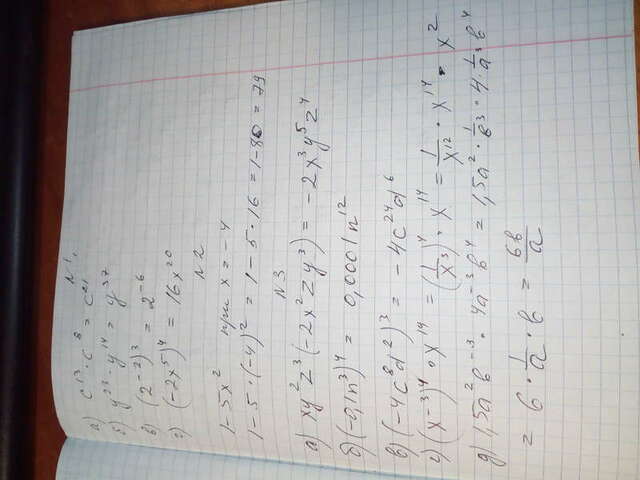 N1.
а) c¹³ · c⁸ = c²¹
б) y²³ · y¹⁴ = y³⁷
в) (2⁻²)³ = 2⁻⁶
г) (-2x⁵)⁴ = 16x²⁰
N2
1-5x² при x = -4
1-5·(-4)² = 1-5·16 = 1-80 = 79
N3
а) xy²z³(-2x²zy³) = -2x³y⁵z⁴
б) (-0,1n³)⁴ = 0,0001n¹²
в) (-4c⁸d²)³ = -4c²⁴d⁶
г) (x⁻³)⁴ · x¹⁴ = (1/x³)⁴ · x¹⁴ = 1/x¹² · x¹⁴ = x²
д) 1,5a²b⁻³ · 4a⁻³b⁴ = 1,5a² · 1/b³ · 4 · 1/a³ · b⁴
= 6 · 1/a · b = 6b/a